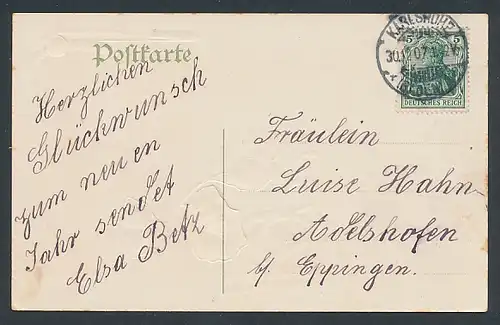 Postkarte
Herzlichen
Glückwunsch
zum neuen
Jahr sendet
Elsa Betz
KARLSRUHE
30.12.07
(BADEN)
5
5
DEUTSCHES REICH
Fräulein
Luise Hahn
Adelshofen
b/ Eppingen.